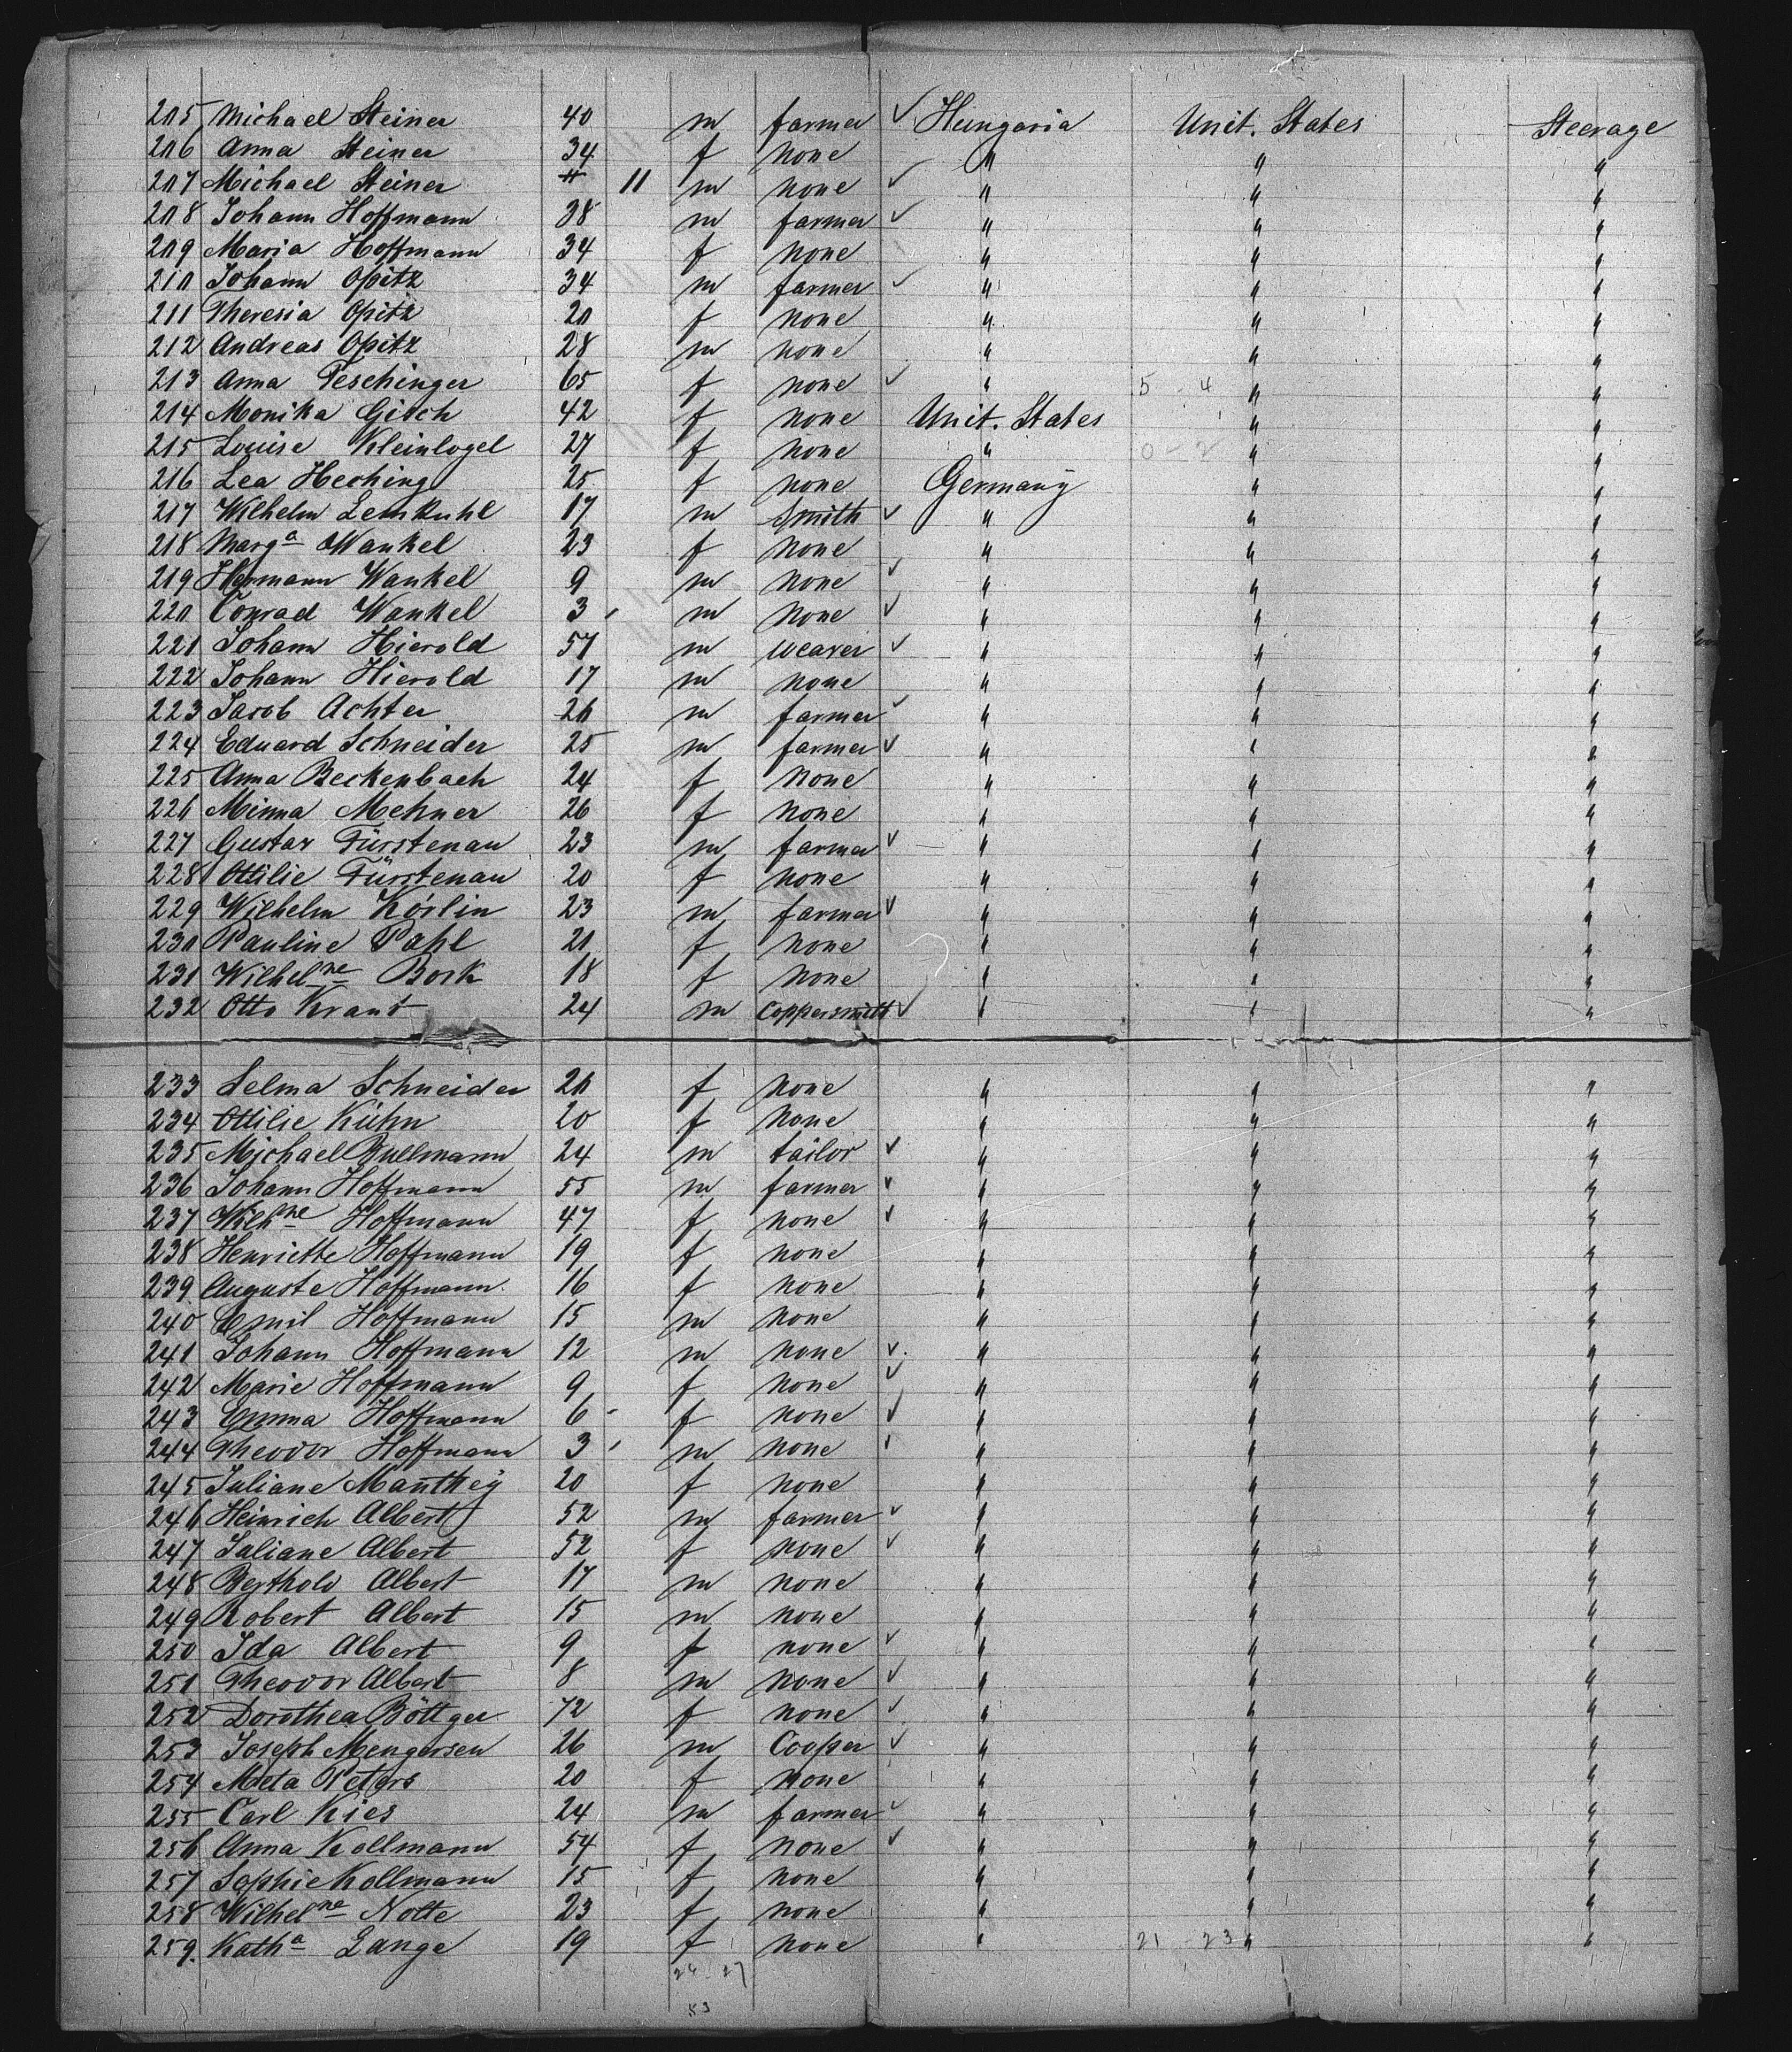 205 Michael Steiner 40 m farmer ✓ Hungaria Unit. States Steerage
206 Anna Steiner 34 f none " " "
207 Michael Steiner 11 11 m none ✓ " " "
208 Johann Hoffmann 38 m farmer ✓ " " "
209 Maria Hoffmann 34 f none " " "
210 Johann Opitz 34 m farmer ✓ " " "
211 Theresia Opitz 20 f none " " "
212 Andreas Opitz 28 m none " " "
213 Anna Teschinger 65 f none ✓ " 5 - 4 " "
214 Monika Gisch 42 f none Unit. States " "
215 Louise Kleinlogel 27 f none " 0 - 2 " "
216 Lea Heching 25 f none Germany " "
217 Wilhelm Lemkuhl 17 m Smith ✓ " " "
218 Marga Wankel 23 f none " " "
219 Hermann Wankel 9 m none ✓ " " "
220 Conrad Wankel 3 m none ✓ " " "
221 Johann Hierold 57 m weaver ✓ " " "
222 Johann Hierold 17 m none " " "
223 Jacob Achter 26 m farmer ✓ " " "
224 Eduard Schneider 25 m farmer ✓ " " "
225 Anna Beckenbach 24 f none " " "
226 Minna Mehner 26 f none " " "
227 Gustav Fürstenau 23 m farmer ✓ " " "
228 Ottilie Fürstenau 20 f none " " "
229 Wilhelm Körlin 23 m farmer ✓ " " "
230 Pauline Pahl 21 f none " " "
231 Wilhelne Bork 18 f none " " "
232 Otto Kraus 24 m Coppersmith ✓ " " "
233 Selma Schneider 20 f none " " "
234 Ottilie Kühn 20 f none " " "
235 Michael Bullmann 24 m tailor ✓ " " "
236 Johann Hoffmann 55 m farmer ✓ " " "
237 Wilhne Hoffmann 47 f none ✓ " " "
238 Henriette Hoffmann 19 f none " " "
239 Auguste Hoffmann 16 f none " " "
240 Emil Hoffmann 15 m none " " "
241 Johann Hoffmann 12 m none ✓ " " "
242 Marie Hoffmann 9 f none ✓ " " "
243 Emma Hoffmann 6 f none ✓ " " "
244 Theodor Hoffmann 3 m none ✓ " " "
245 Juliane Manthey 20 f none " " "
246 Heinrich Albert 52 m farmer ✓ " " "
247 Juliane Albert 52 f none ✓ " " "
248 Berthold Albert 17 m none " " "
249 Robert Albert 15 m none " " "
250 Ida Albert 9 f none ✓ " " "
251 Theodor Albert 8 m none ✓ " " "
252 Dorothea Böttger 72 f none ✓ " " "
253 Joseph Mengersen 26 m Cooper ✓ " " "
254 Meta Peters 20 f none " " "
255 Carl Kies 24 m farmer ✓ " " "
256 Anna Kollmann 54 f none ✓ " " "
257 Sophie Kollmann 15 f none " " "
258 Wilhelne Nolte 23 f none " " "
259. Katha Lange 19 f none " 21 - 23 " "
26 - 27
53